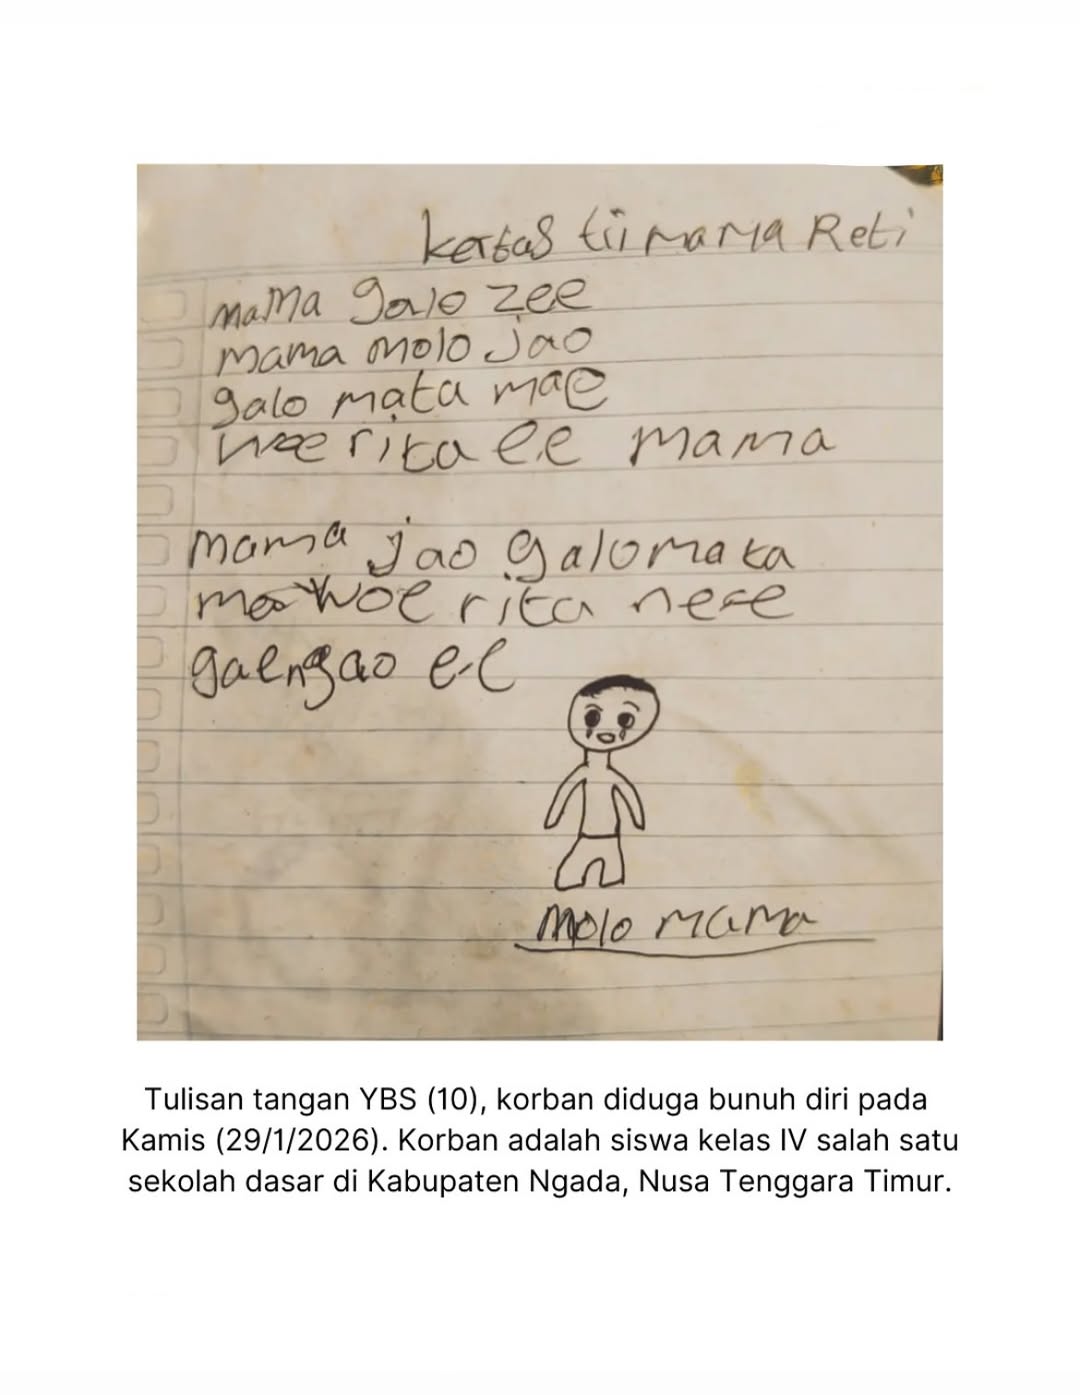 kertas tii mama Reti
mama galo zee
mama molo jao
galo mata mae
woe rita ee mama
mama jao galo mata
mae woe rita nee
gae ngao ee
molo mama
Tulisan tangan YBS (10), korban diduga bunuh diri pada
Kamis (29/1/2026). Korban adalah siswa kelas IV salah satu
sekolah dasar di Kabupaten Ngada, Nusa Tenggara Timur.